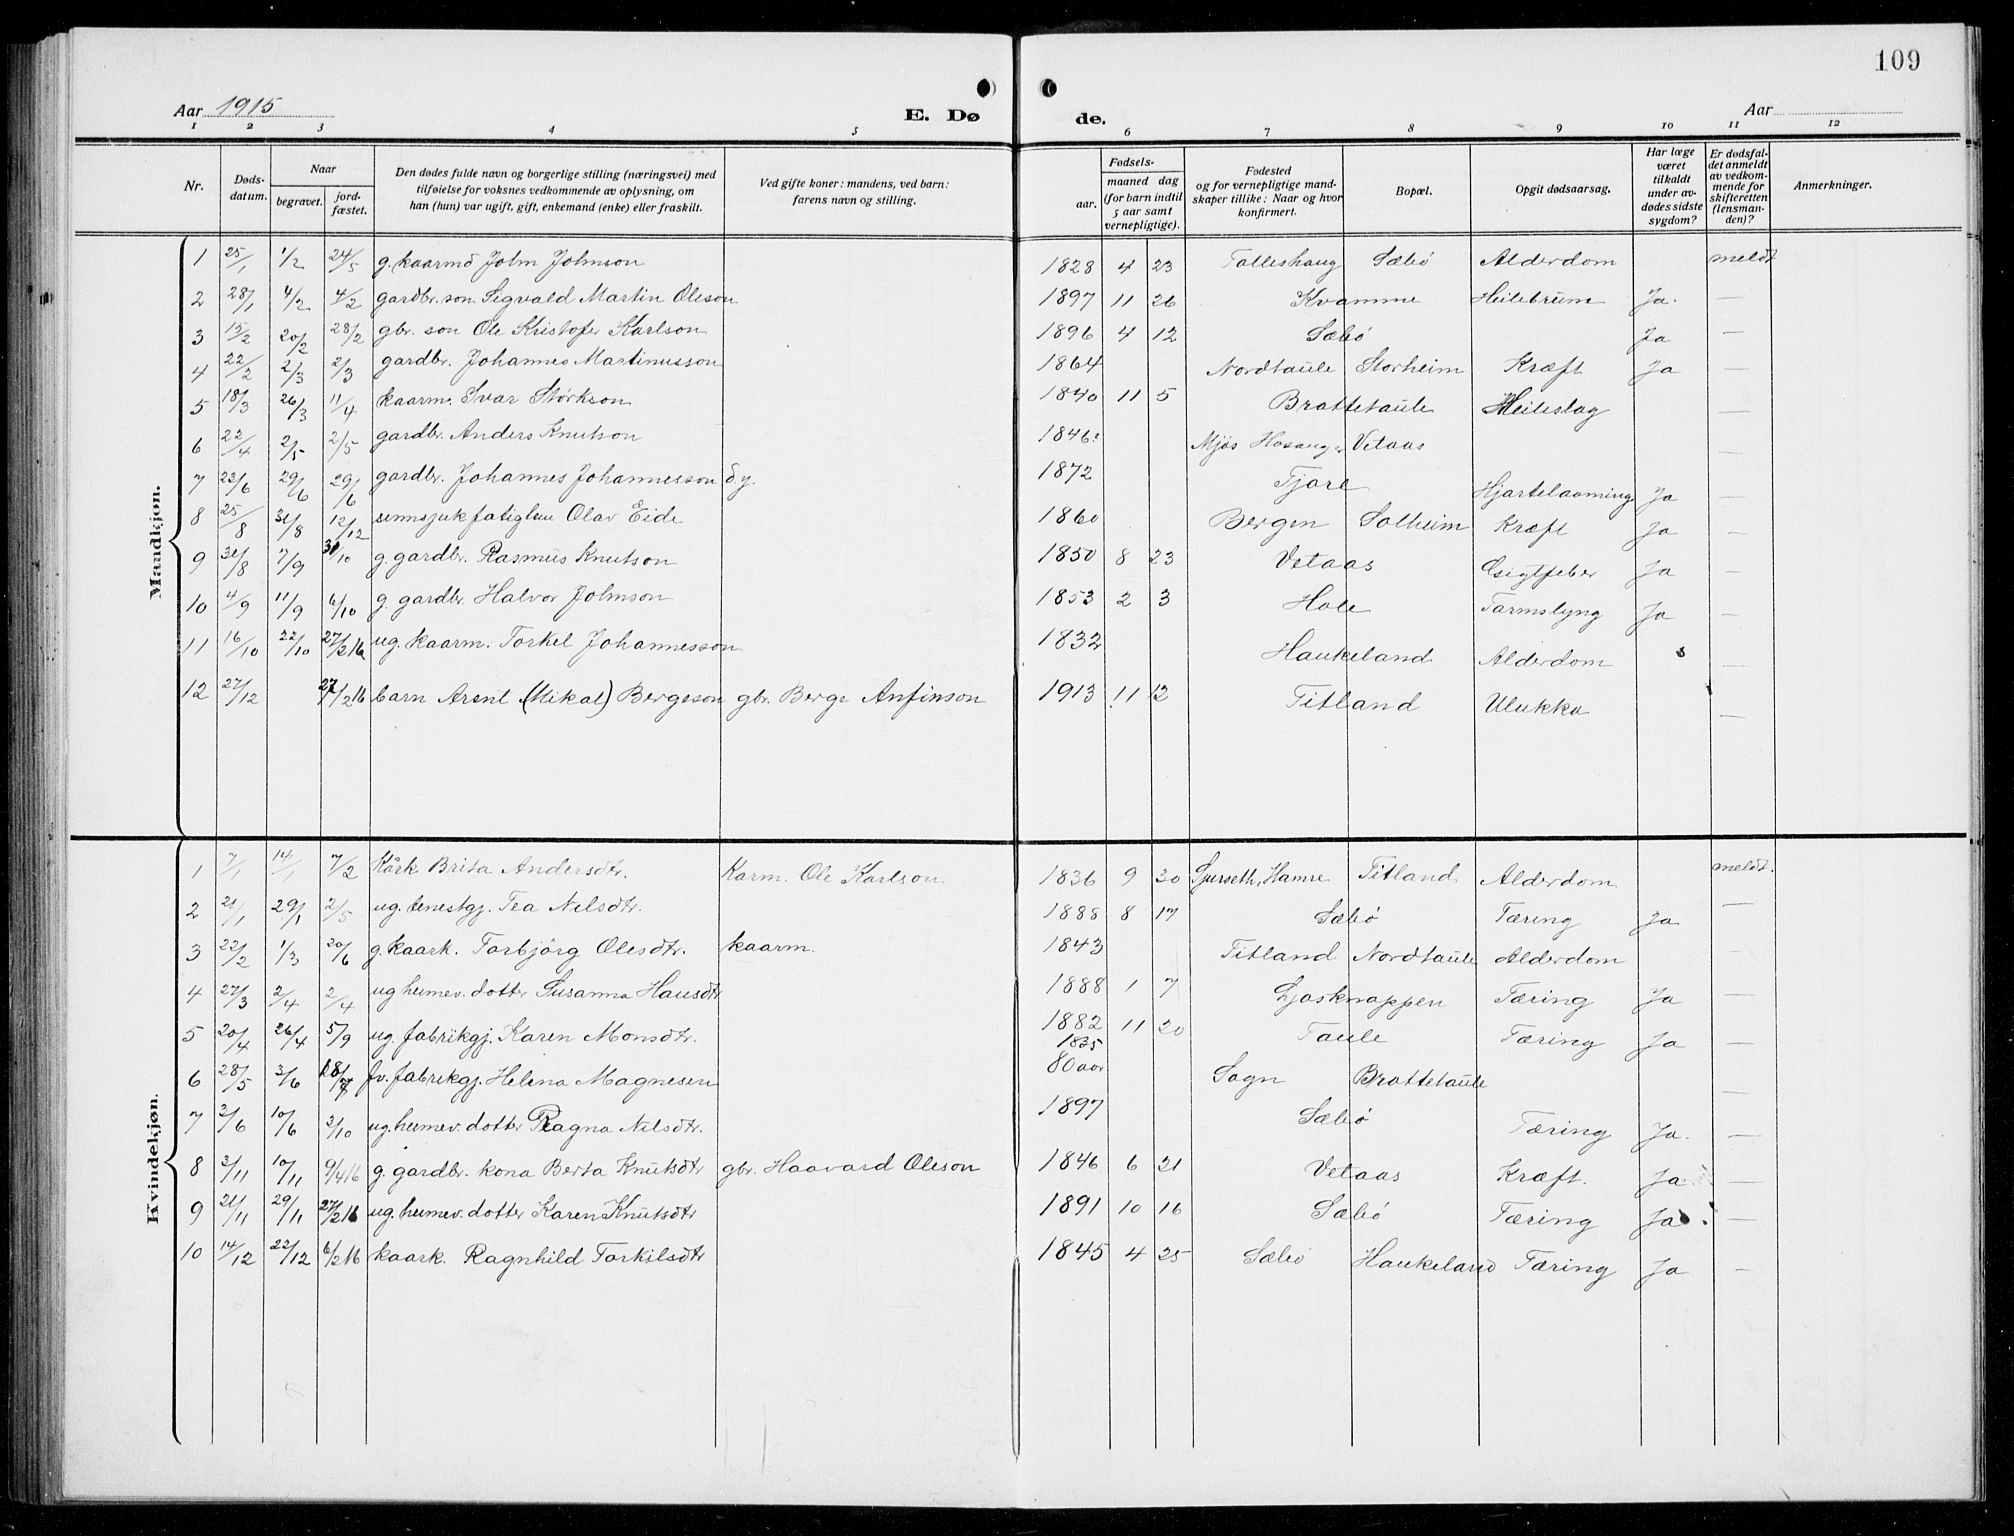 109
Aar 1915
E. Dø
de.
Aar
1 2 3 4 5 6 7 8 9 10 11 12
Nr. Døds-datum. Naar begravet. jord-fæstet. Den dødes fulde navn og borgerlige stilling (næringsvei) med tilføielse for voksnes vedkommende av oplysning, om han (hun) var ugift, gift, enkemand (enke) eller fraskilt. Ved gifte koner: mandens, ved barn: farens navn og stilling. Fødsels- aar. maaned dag (for barn indtil 5 aar samt vernepligtige). Fødested og for vernepligtige mandskaper tillike: Naar og hvor konfirmert. Bopæl. Opgit dødsaarsag. Har læge været tilkaldt under avdødes sidste sygdom? Er dødsfaldet anmeldt av vedkommende for skifteretten (lensmanden)? Anmerkninger.
Mandkjøn.
1 25/1 1/2 24/5 g. kaarmd John Johnson 1828 4 23 Tolleshaug Sæbø Alderdom meldt
2 28/1 4/2 4/2 gardbr. son Sigvald Martin Oleson 1897 11 26 Kvamme Heilebrum Ja. —
3 15/2 20/2 28/2 gbr. son Ole Kristofer Karlson 1896 4 12 Sæbø Ja —
4 22/2 2/3 2/3 gardbr. Johannes Martinusson 1864 Nordtaule Storheim Kræft Ja —
5 18/3 26/3 11/4 kaarm. Ivar Størkson 1840 11 5 Brattetaule Heileslag —
6 22/4 2/5 2/5 gardbr. Anders Knutson 1846 Mjøs Hosang. Vetaas —
7 23/6 29/6 29/6 gardbr. Johannes Johannesson d.y. 1872 Tjore Hjartelaaming Ja —
8 25/8 31/8 12/12 sinnssjuk fatiglem Olav Eide 1860 Bergen Solheim Kræft Ja —
9 31/8 7/9 31/10 g. gardbr. Rasmus Knutson 1850 8 23 Vetaas Gigtfeber Ja —
10 4/9 11/9 6/10 g. gardbr. Halvor Johnson 1853 2 3 Hole Tarmslyng Ja —
11 16/10 22/10 27/2 16 ug. kaarm. Torkel Johannesson 1832 Haukeland Alderdom —
12 27/12 27/2 16 barn Arent (Mikal) Bergeson gbr. Berge Anfinson 1913 11 12 Titland Ulukka —
Kvindekjøn.
1 7/1 14/1 7/2 Kårk Brita Andersdtr. Karm. Ole Karlson 1836 9 30 Sjurseth, Hamre Titland Alderdom meldt.
2 21/1 29/1 2/5 ug. tenestgj. Tea Nilsdtr. 1888 8 17 Sæbø Tæring Ja —
3 22/2 1/3 20/6 g. kaark. Torbjörg Olesdtr. kaarm. 1843 Titland Nordtaule Alderdom —
4 27/3 2/4 2/4 ug heimev. dotter Susanna Hansdtr 1888 1 7 Ljosknappen Tæring Ja —
5 20/4 26/4 5/9 ug. fabrikgj. Karen Monsdtr. 1882 11 20 Taule Tæring Ja —
6 28/5 3/6 18/7 fv. fabrikgj. Helena Magnesen 1835 80 aar Sogn Brattetaule —
7 3/6 10/6 3/10 ug. heimev. dotter Ragna Nilsdtr. 1897 Sæbø Tæring Ja. —
8 3/11 10/11 9/4 16 g. gardbr. kona Berta Knutsdtr gbr. Haavard Oleson 1846 6 21 Vetaas Kræft. Ja —
9 21/11 29/11 27/2 16 ug. heimev. dotter Karen Knutsdtr 1891 10 16 Sæbø Tæring Ja —
10 14/12 22/12 6/2 16 kaark. Ragnhild Torkilsdtr 1845 4 25 Sæbø Haukeland Tæring Ja —